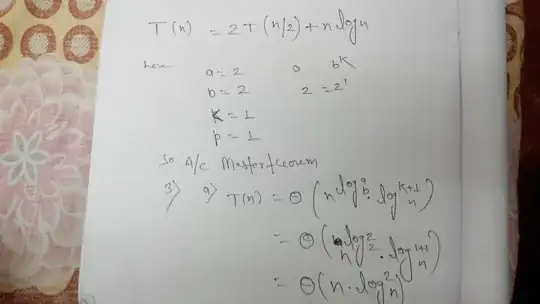 T(n) = 2T(n/2) + n logn
here a = 2 a b^K
b = 2 2 = 2^1
K = 1
p = 1
So A/C Mastertheorum
3) a) T(n) = Θ(n^log_b^a · log^(K+1) n)
= Θ(n^log_2^2 · log^(1+1) n)
= Θ(n · log^2 n)